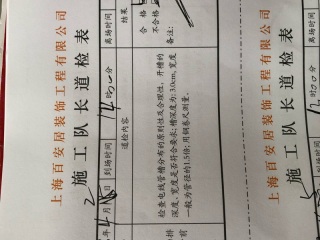 上海百安居装饰工程有限公司
施工队长道检表
年 4 月 日
到场时间
14 时 分
离场时间
道检内容
结果
检查电线管槽分布的原则性及合理性，开槽的
深度、宽度是否符合要求：槽深度为：3.0cm，宽度
一般为管径的1.5倍；用钢卷尺测量。
合格
不合格
备注：
上海百安居装饰工程有限公司
施工队长道检表
到场时间
时 分
离场时间